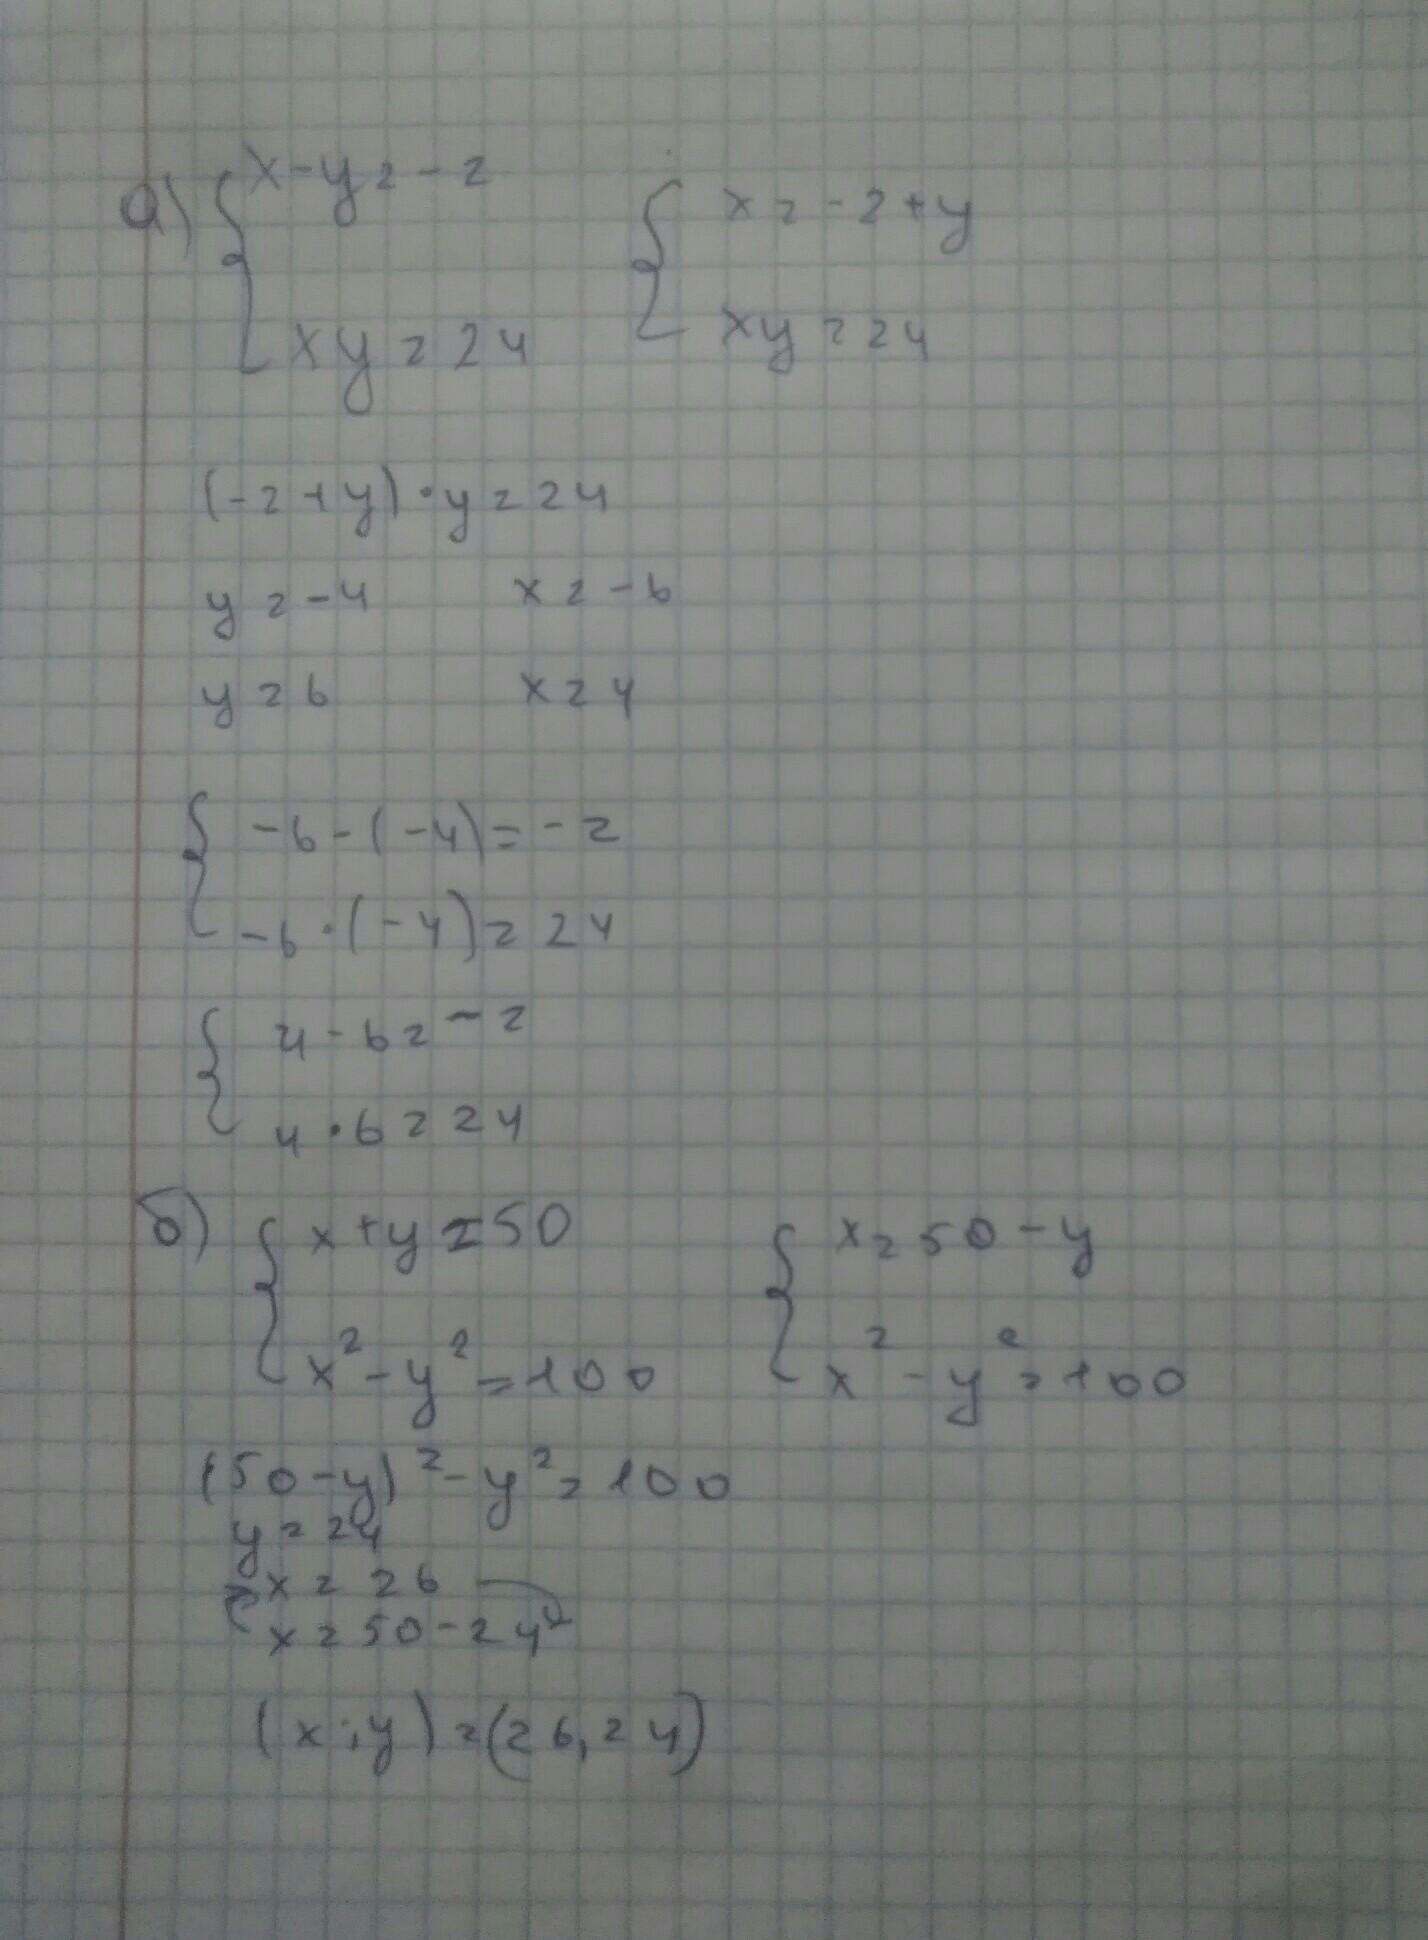 а) { x-y=-2 { x=-2+y
xy=24 xy=24
(-2+y)·y=24
y=-4 x=-6
y=6 x=4
{ -6-(-4)=-2
-6·(-4)=24
{ 4-6=-2
4·6=24
б) { x+y=50 { x=50-y
x²-y²=100 x²-y²=100
(50-y)²-y²=100
y=24
x=26
x=50-24
(x;y)=(26,24)